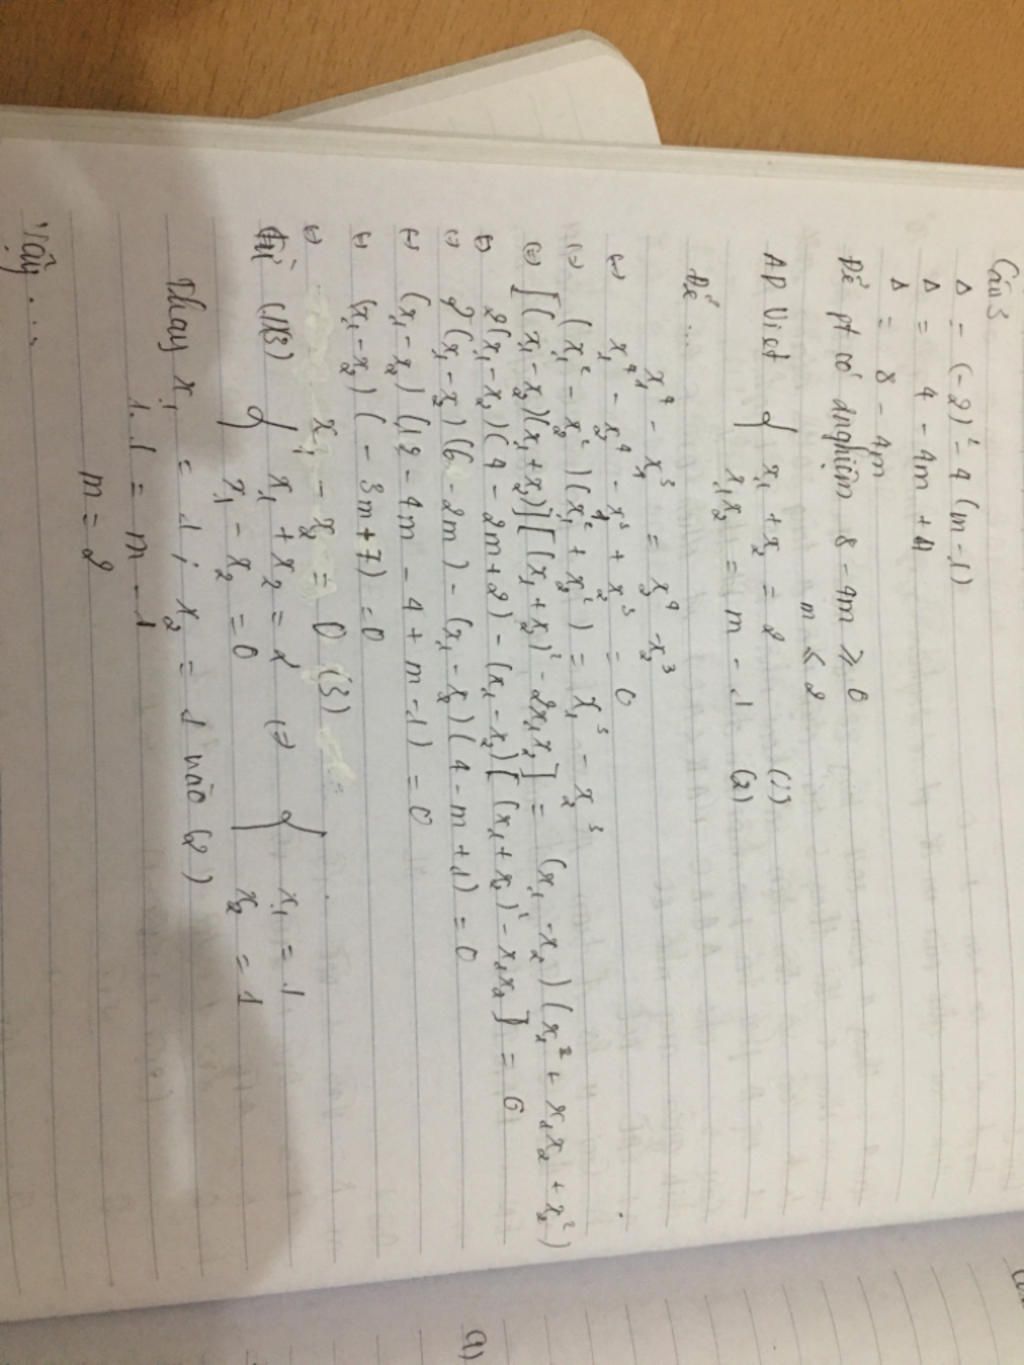 Câu 3
Δ = (-2)² - 4(m-1)
Δ = 4 - 4m + 4
Δ = 8 - 4m
Để pt có 2 nghiệm 8 - 4m ≥ 0
m ≤ 2
AD Viet { x₁ + x₂ = 2 (1)
x₁x₂ = m - 1 (2)
Để ...
x₁⁴ - x₁³ = x₂⁴ - x₂³
(=) x₁⁴ - x₂⁴ - x₁³ + x₂³ = 0
(=) (x₁² - x₂²)(x₁² + x₂²) = x₁³ - x₂³
(=) [(x₁ - x₂)(x₁ + x₂)][(x₁ + x₂)² - 2x₁x₂] = (x₁ - x₂)(x₁² + x₁x₂ + x₂²)
(=) 2(x₁ - x₂)(4 - 2m + 2) - (x₁ - x₂)[(x₁ + x₂)² - x₁x₂] = 0
(=) 2(x₁ - x₂)(6 - 2m) - (x₁ - x₂)(4 - m + 1) = 0
(=) (x₁ - x₂)(12 - 4m - 4 + m - 1) = 0
(=) (x₁ - x₂)(-3m + 7) = 0
(=) x₁ - x₂ = 0 (3)
Từ (1)(3) { x₁ + x₂ = 2 (=) { x₁ = 1
x₁ - x₂ = 0 x₂ = 1
Thay x₁ = 1; x₂ = 1 vào (2)
1.1 = m - 1
m = 2
Vậy ...
a)